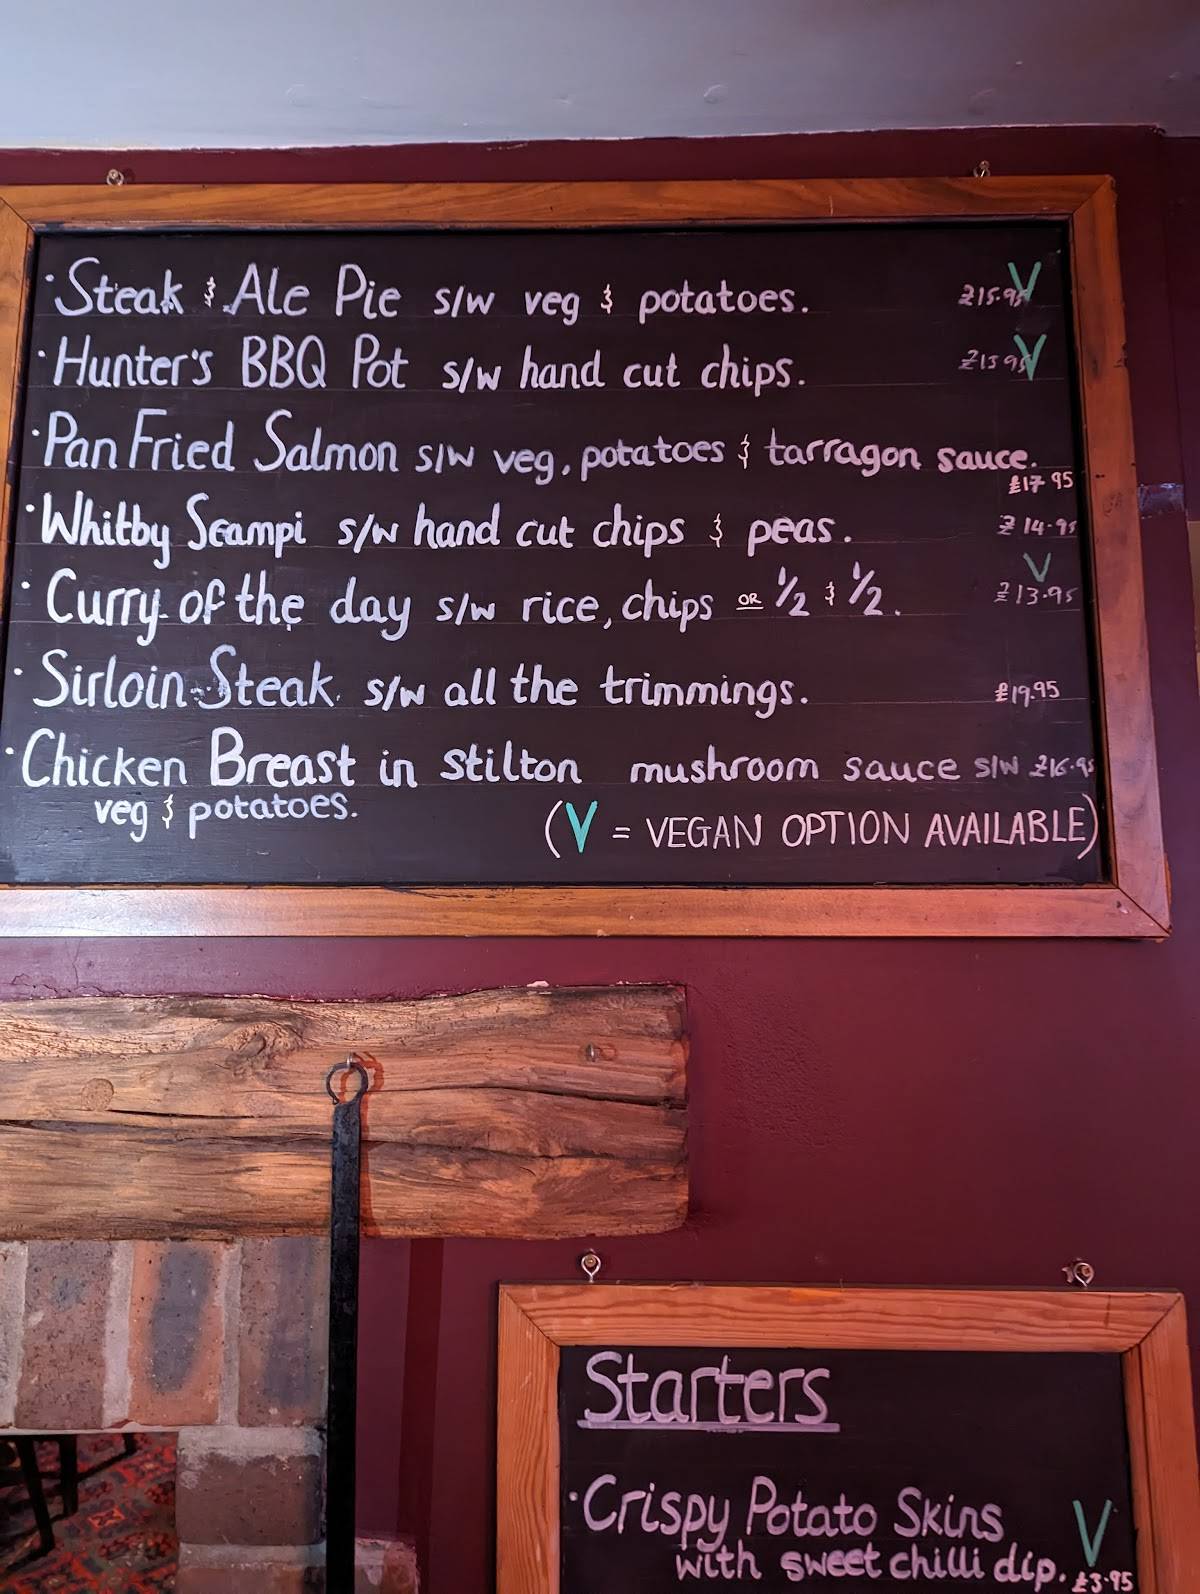 · Steak & Ale Pie s/w veg & potatoes. £15.95 V
· Hunter's BBQ Pot s/w hand cut chips. £13.95 V
· Pan Fried Salmon s/w veg, potatoes & tarragon sauce.
£17.95
· Whitby Scampi s/w hand cut chips & peas. £14.95
· Curry of the day s/w rice, chips OR 1/2 & 1/2. V £13.95
· Sirloin Steak s/w all the trimmings. £19.95
· Chicken Breast in stilton mushroom sauce s/w £16.95
veg & potatoes.
(V = VEGAN OPTION AVAILABLE)
Starters
· Crispy Potato Skins V
with sweet chilli dip. £3.95